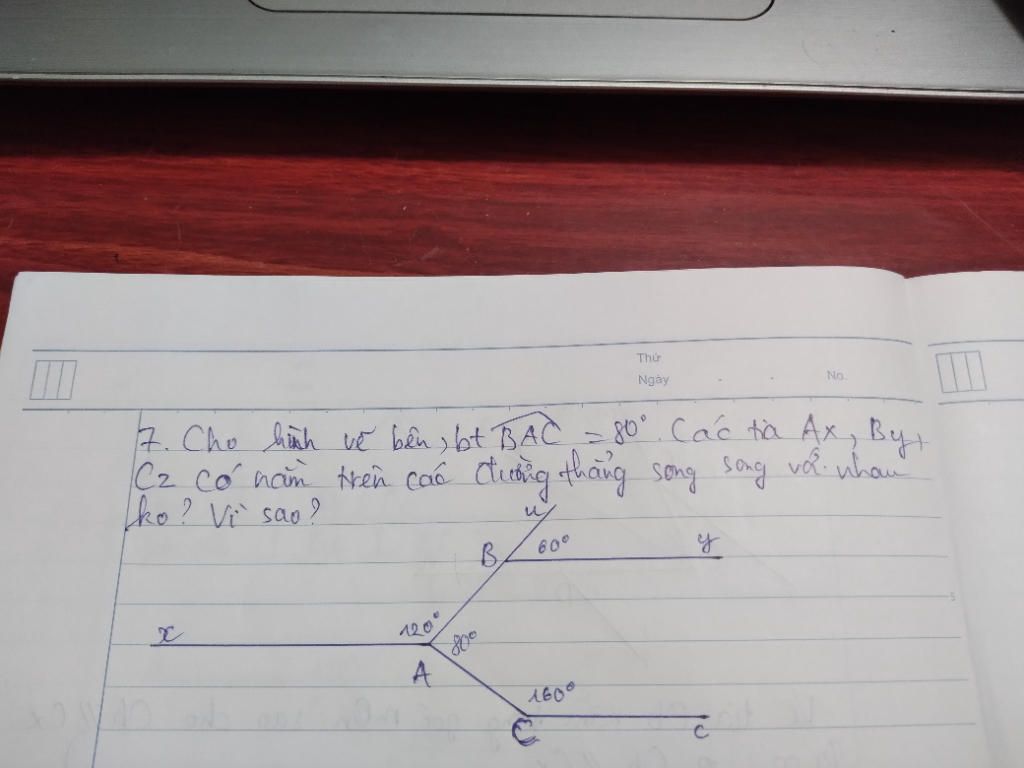 Thứ
Ngày . . No.
7. Cho hình vẽ bên, bt BAC = 80°. Các tia Ax, By,
Cz có nằm trên các đường thẳng song song với nhau
ko? Vì sao?
u
B 60° y
x 120°
80°
A
160°
C c